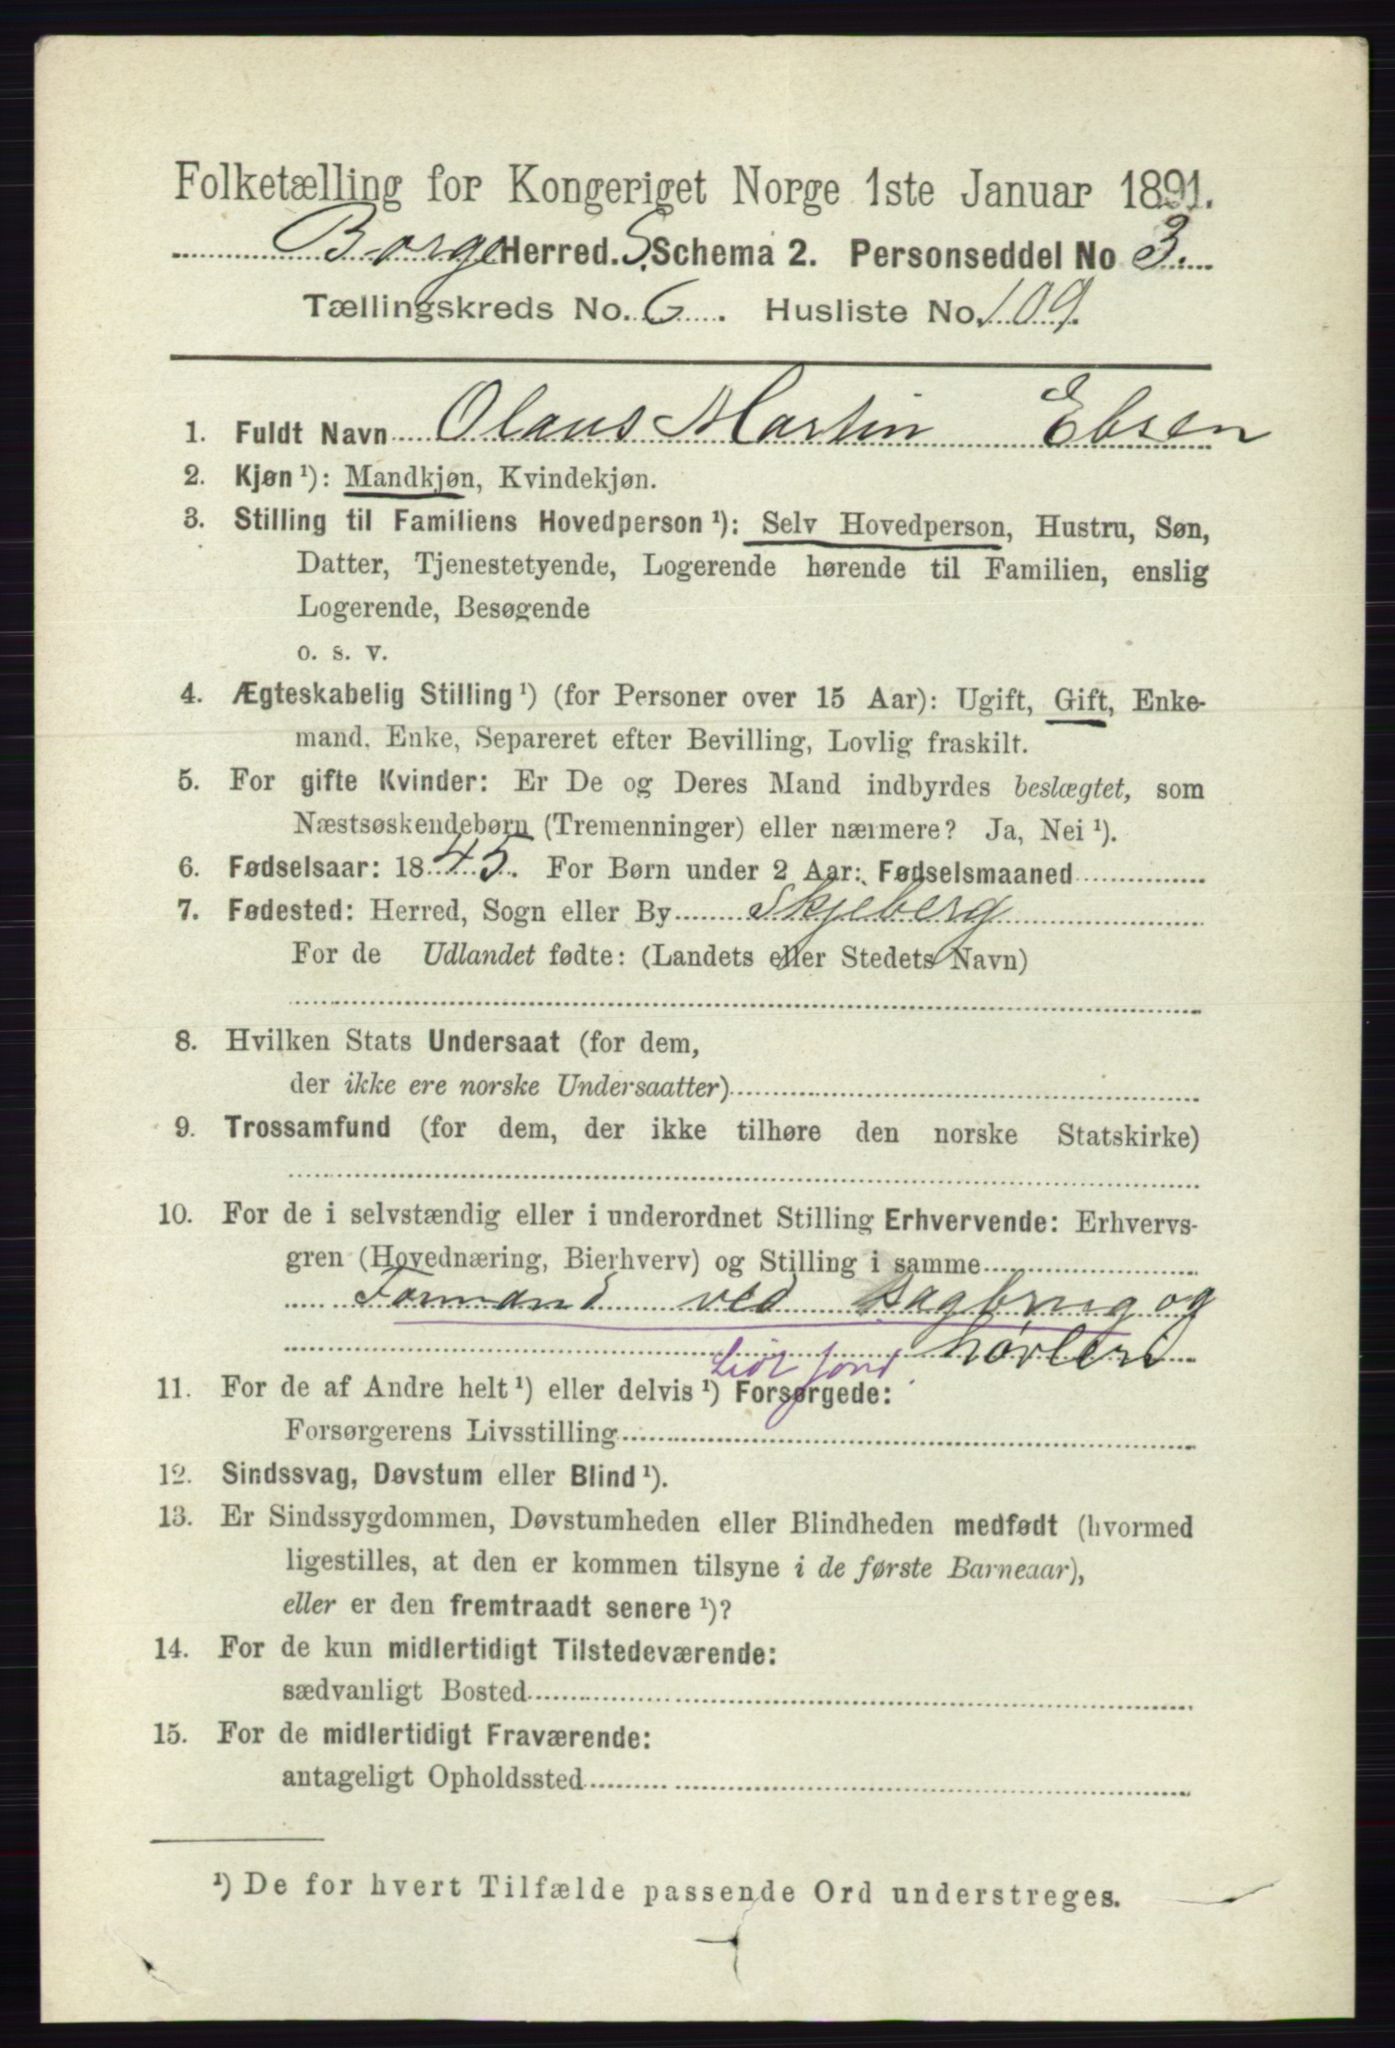 Folketælling for Kongeriget Norge 1ste Januar 1891.
Borge Herred. S. Schema 2. Personseddel No 3.
Tællingskreds No. 6. Husliste No. 109.
1. Fuldt Navn Olaus Martin Ebsen
2. Kjøn ¹): Mandkjøn, Kvindekjøn.
3. Stilling til Familiens Hovedperson ¹): Selv Hovedperson, Hustru, Søn,
Datter, Tjenestetyende, Logerende hørende til Familien, enslig
Logerende, Besøgende
o. s. v.
4. Ægteskabelig Stilling ¹) (for Personer over 15 Aar): Ugift, Gift, Enke-
mand, Enke, Separeret efter Bevilling, Lovlig fraskilt.
5. For gifte Kvinder: Er De og Deres Mand indbyrdes beslægtet, som
Næstsøskendebørn (Tremenninger) eller nærmere? Ja, Nei ¹).
6. Fødselsaar: 1845. For Børn under 2 Aar: Fødselsmaaned
7. Fødested: Herred, Sogn eller By Skjeberg
For de Udlandet fødte: (Landets eller Stedets Navn)
8. Hvilken Stats Undersaat (for dem,
der ikke ere norske Undersaatter)
9. Trossamfund (for dem, der ikke tilhøre den norske Statskirke)
10. For de i selvstændig eller i underordnet Stilling Erhvervende: Erhvervs-
gren (Hovednæring, Bierhverv) og Stilling i samme
Formand ved Sagbrug og
høvleri
11. For de af Andre helt ¹) eller delvis ¹) Forsørgede:
Forsørgerens Livsstilling
12. Sindssvag, Døvstum eller Blind ¹).
13. Er Sindssygdommen, Døvstumheden eller Blindheden medfødt (hvormed
ligestilles, at den er kommen tilsyne i de første Barneaar),
eller er den fremtraadt senere ¹)?
14. For de kun midlertidigt Tilstedeværende:
sædvanligt Bosted
15. For de midlertidigt Fraværende:
antageligt Opholdssted
¹) De for hvert Tilfælde passende Ord understreges.